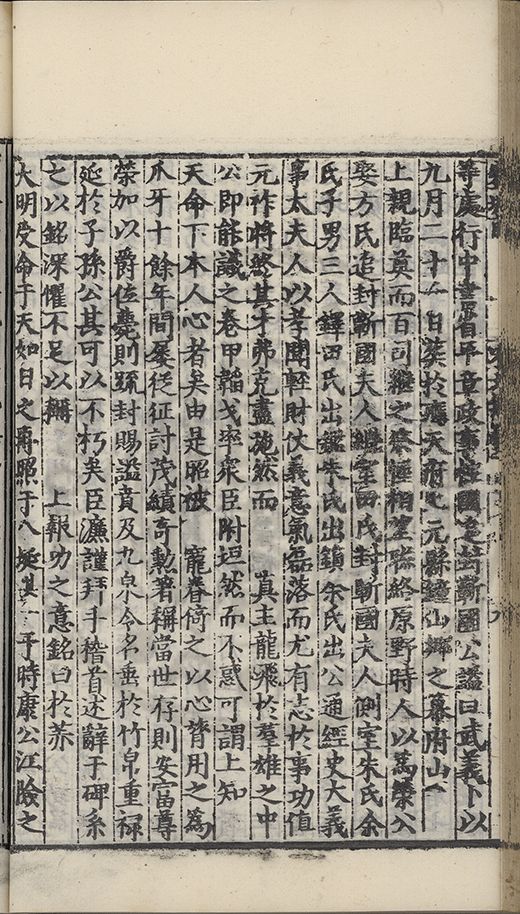 等處行中書省平章政事柱國追封蘄國公諡曰武義卜以
九月二十一日葬於應天府上元縣鍾山鄉之幕府山
上親臨奠而百司繼之祭幄相望聯絡原野時人以爲榮公
娶方氏追封蘄國夫人繼室田氏封蘄國夫人側室朱氏余
氏子男三人鐸田氏出鑑朱氏出鎮余氏出公通經史大義
事太夫人以孝聞輕財仗義意氣磊落而尤有志於事功值
元祚將終其才弗克盡施然而 眞主龍飛於羣雄之中
公即能識之卷甲韜戈率衆臣附坦然而不惑可謂上知
天命下本人心者矣由是昭被 寵眷倚之以心膂用之爲
爪牙十餘年間屢從征討茂績奇勳著稱當世存則安富尊
榮加以爵位薨則疏封賜諡賁及九泉令名垂於竹帛重祿
延於子孫公其可以不朽矣臣濂謹拜手稽首述辭于碑系
之以銘深懼不足以稱 上報功之意銘曰於赫
大明受命于天如日之昇照于八埏其一平時康公江險之